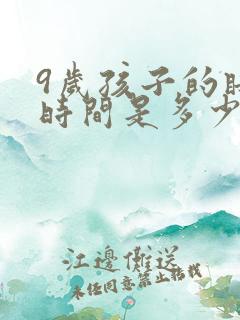 9歲孩子的
時間是多少
江邊僽送
未经同意禁止转载